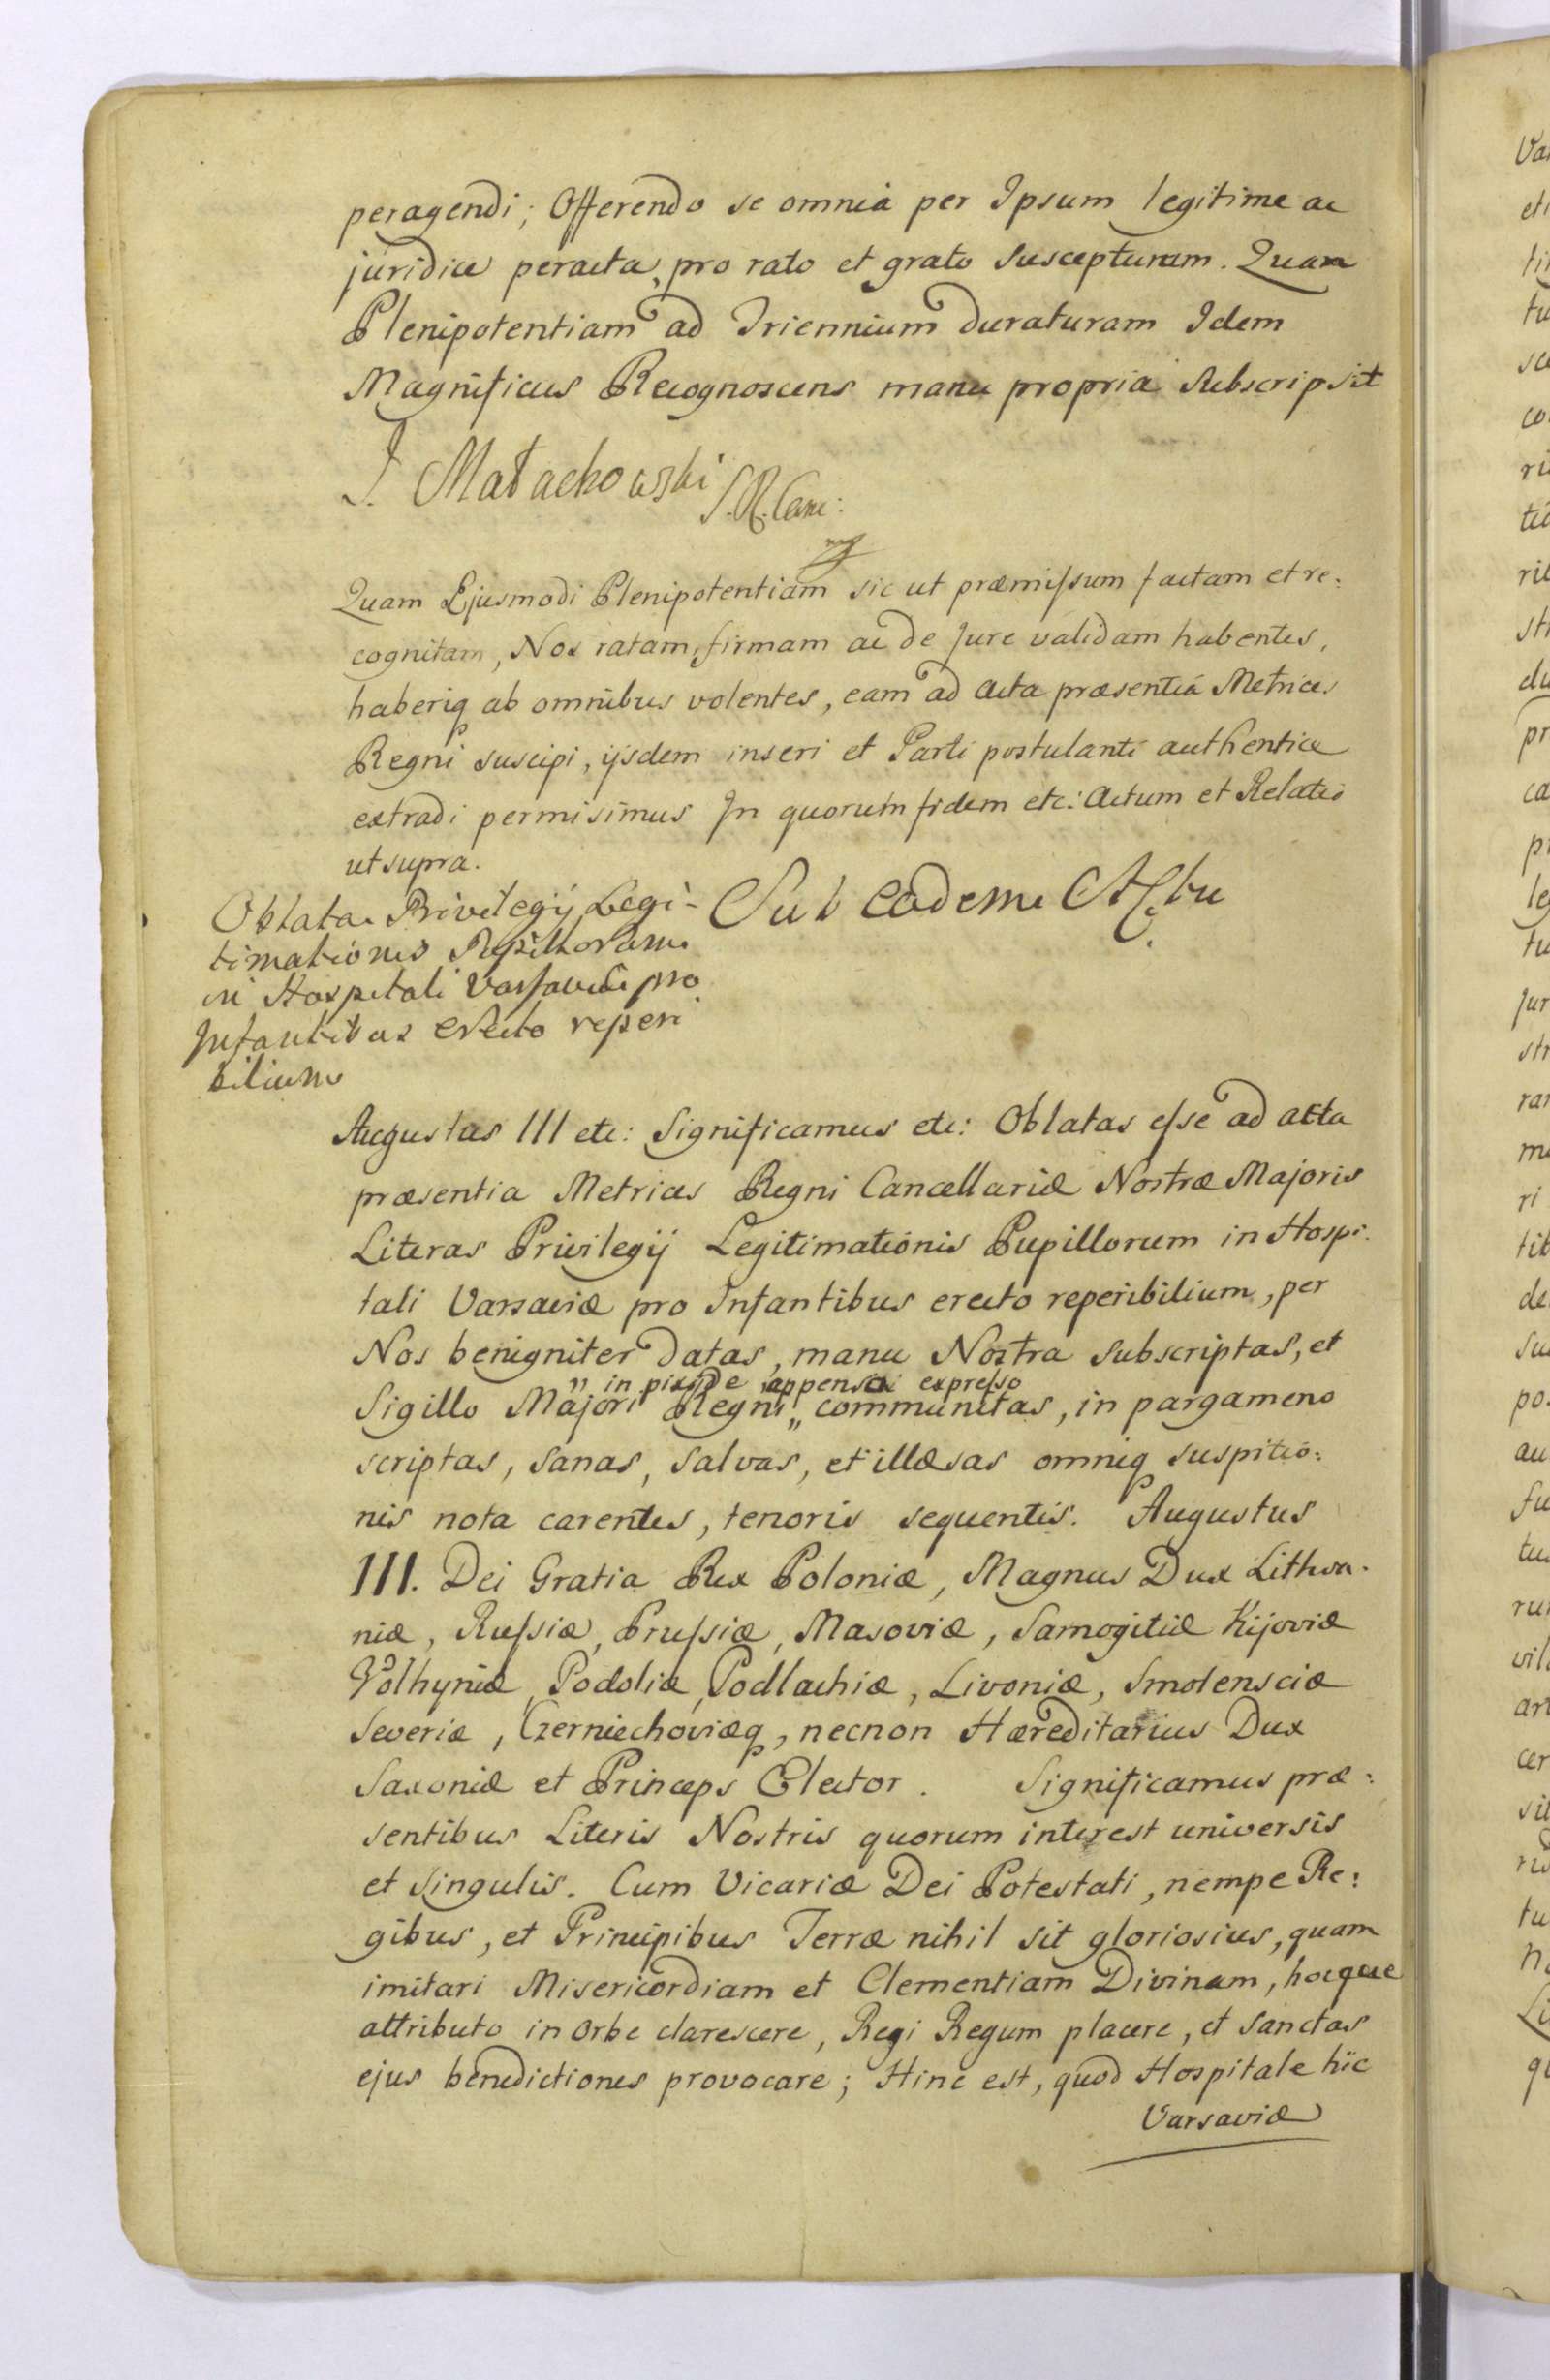 peragendi; Offerendo se omnia per Ipsum legitime ac
juridice peracta, pro rato et grato suscepturum. Quam
Plenipotentiam ad Triennium duraturam Idem
Magnificus Recognoscens manu propria subscripsit
J. Małachowski S.R. Canc:
mp
Quam Ejusmodi Plenipotentiam sic ut præmissum factam et re:
cognitam, Nos ratam, firmam ac de jure validam habentes,
haberiq ab omnibus volentes, eam ad acta præsentia Metrices
Regni suscipi, ijsdem inseri et Parti postulanti authentice
extradi permisimus In quorum fidem etc: Actum et Relatio
ut supra.
Oblata Privilegij Legi-
timationis Pupillorum
in Hospitali Varsaviæ pro
Infantibus erecto reperi
bilium
Sub eodem Actu
Augustus III etc: Significamus etc: Oblatas esse ad acta
præsentia Metrices Regni Cancellariæ Nostræ Majoris
Literas Privilegij Legitimationis Pupillorum in Hospi:
tali Varsaviæ pro Infantibus erecto reperibilium, per
Nos benigniter datas, manu Nostra subscriptas, et
" in pixide appensa expresso
Sigillo Majori Regni " communitas, in pargameno
scriptas, sanas, salvas, et illæsas omniq suspitio:
nis nota carentes, tenoris sequentis. Augustus
III. Dei Gratia Rex Poloniæ, Magnus Dux Lithva:
niæ, Russiæ, Prussiæ, Masoviæ, Samogitiæ Kijoviæ
Volhyniæ, Podoliæ, Podlachiæ, Livoniæ, Smolensciæ
Severiæ, Czerniechoviæq, necnon Hæreditarius Dux
Saxoniæ et Princeps Elector. Significamus præ:
sentibus Literis Nostris quorum interest universis
et singulis. Cum Vicariæ Dei Potestati, nempe Re:
gibus, et Principibus Terræ nihil sit gloriosius, quam
imitari Misericordiam et Clementiam Divinam, hocque
attributo in orbe clarescere, Regi Regum placere, et sanctas
ejus benedictiones provocare; Hinc est, quod Hospitale hic
Varsaviæ